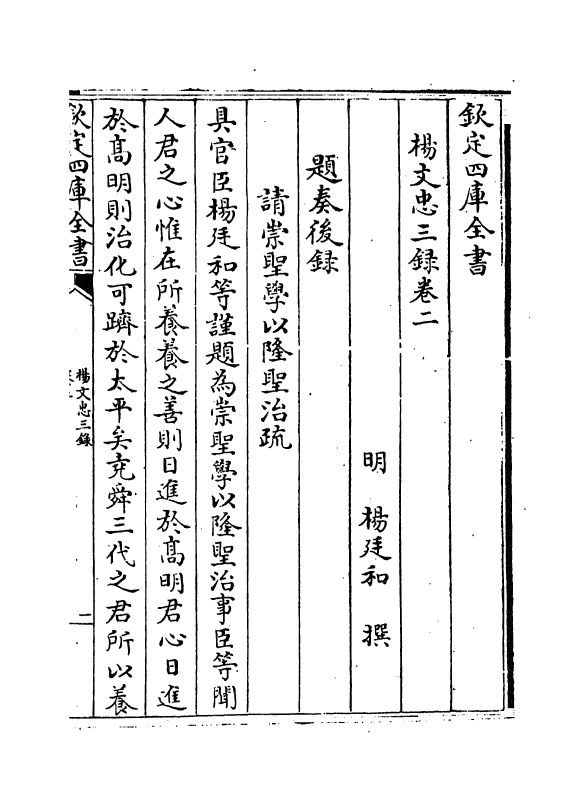 欽定四庫全書
楊文忠三録卷二
明 楊廷和 撰
題奏後録
請崇聖學以隆聖治疏
具官臣楊廷和等謹題為崇聖學以隆聖治事臣等聞
人君之心惟在所養養之善則日進於髙明君心日進
於髙明則治化可躋於太平矣堯舜三代之君所以養
欽定四庫全書
楊文忠三録
一